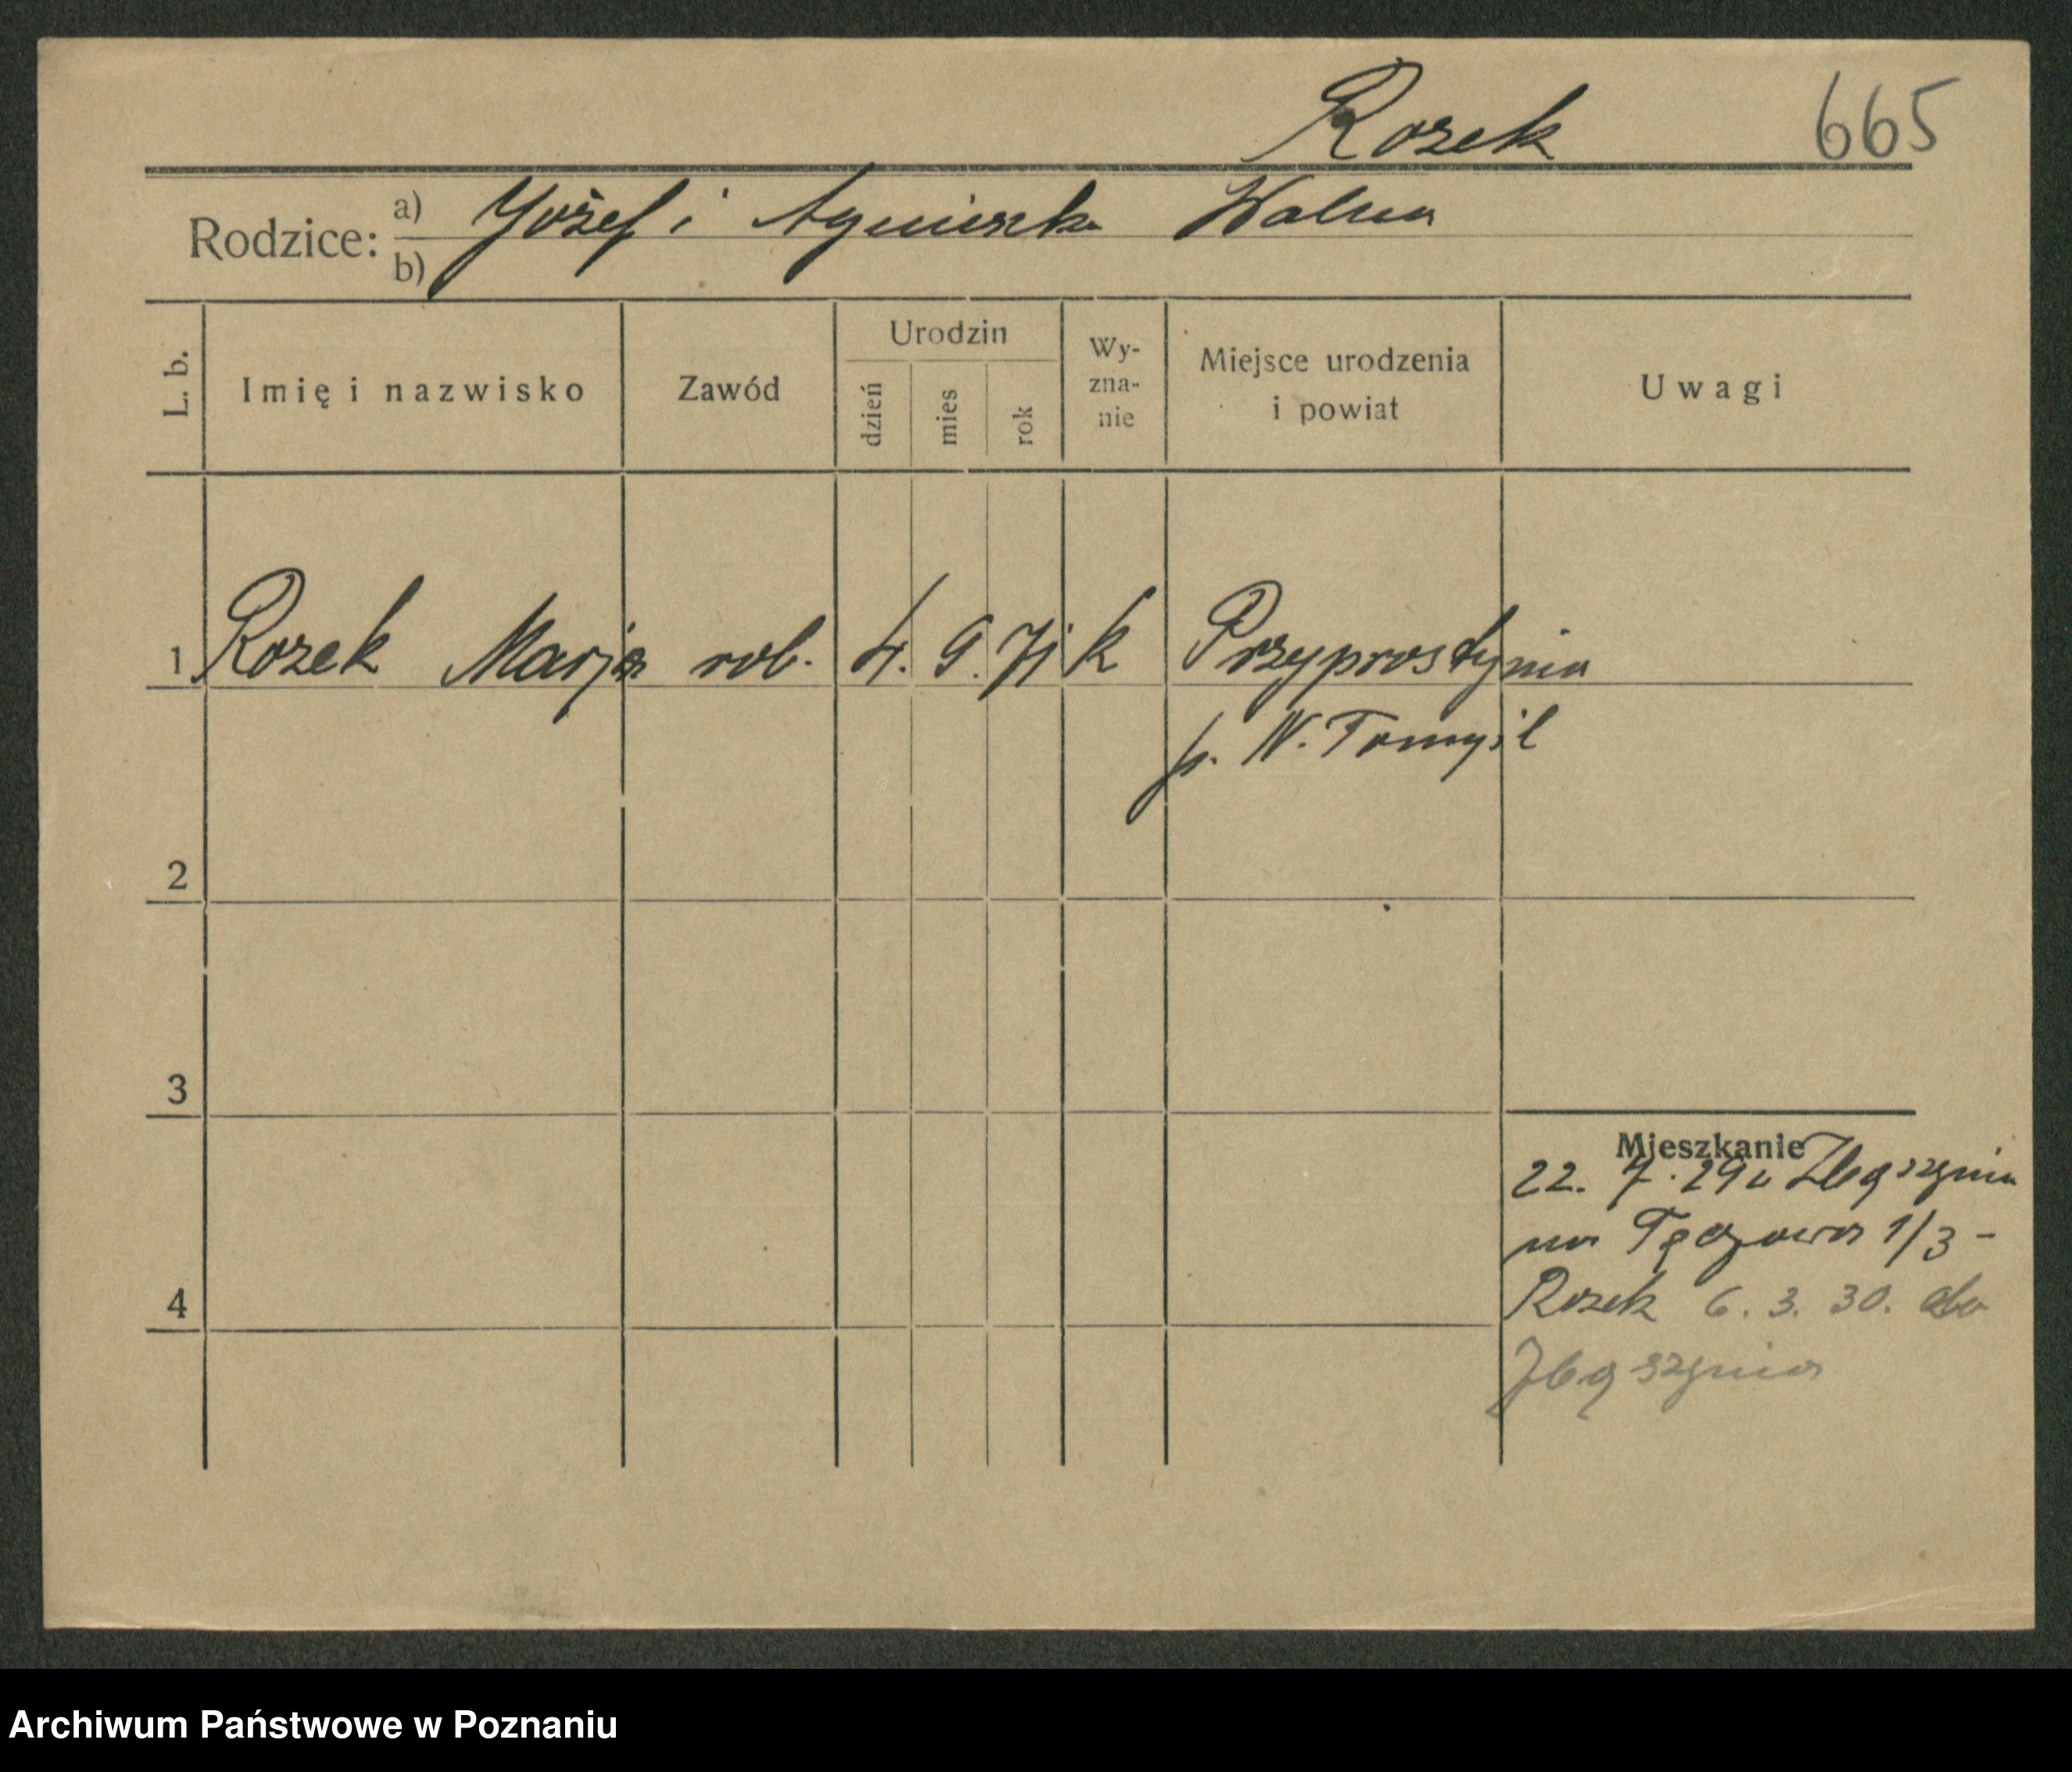 Rozek 665
Rodzice: a) Józef i Agnieszka Walna
b)
L. b. Imię i nazwisko Zawód Urodzin dzień mies rok Wy-zna-nie Miejsce urodzenia i powiat Uwagi
1 Rozek Marja rob. 4. 9. 71 k Przyprostynia
p. N. Tomyśl
2
3
Mieszkanie
22. 7. 29 z Zbąszynia
na Tęczowa 1/3 -
4 Rozek 6. 3. 30. do
Zbąszynia
Archiwum Państwowe w Poznaniu